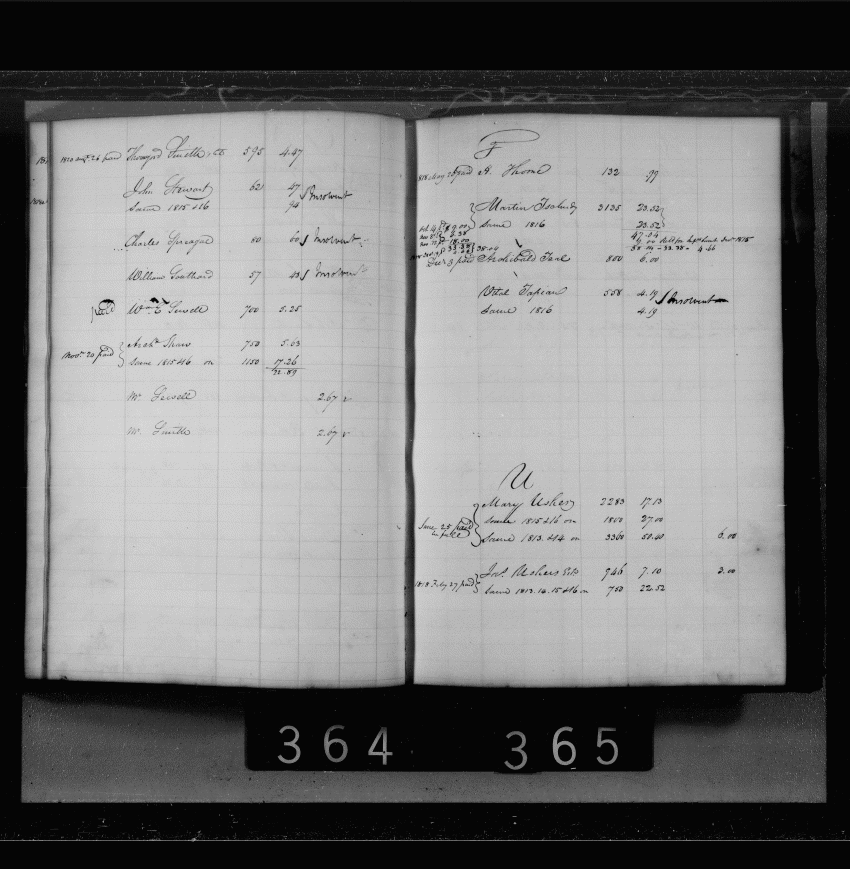 1820 Sept. 26 paid 595 4.47
John Stewart 62 47 } Insolvent
Same 1815 & 16 94
Charles Sprague 80 60 } Insolvent
William Southard 57 43 } Insolvent
paid Wm Sewell 700 5.25
Nov. 20 paid { Archd Shaw 750 5.63
Same 1815 & 16 on 1150 17.26
22.89
Mr Sewell 2.67
Mr Smith 2.67
T
1818 May paid A. Thome 132 .99
Martin 3135 23.52
Same 1816 23.52
47.04
Dec. 3 paid Archibald Teal 800 6.00
Vital Tapian 558 4.19 } Insolvent
Same 1816 4.19
U
Mary Usher 2283 17.13
June 25 paid in full { Same 1815 & 16 on 1800 27.00
Same 1813 & 14 on 3360 50.40 6.00
Jos. Ushers Est. 946 7.10 3.00
1818 Feby 27 paid { Same 1813.14.15 & 16 on 750 22.52
364 365